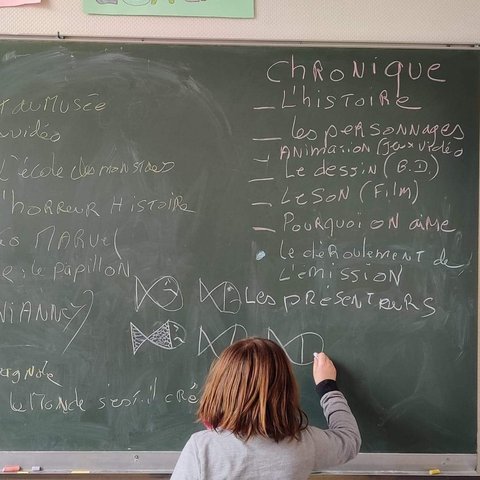 T du Musée
vidéo
L'école des monstres
l'horreur Histoire
MARVEL
: le papillon
VIANNEY)
le Monde s'est-il cré
CHRONIQUE
_ L'HISTOIRE
_ Les PERSONNAGES
_ ANIMATION (jeux vidéo
_ Le dessin (B.D.)
_ Le SON (Film)
_ POURQUOI ON AIME
Le déroulement de
L'émission
Les PRÉSENTEURS